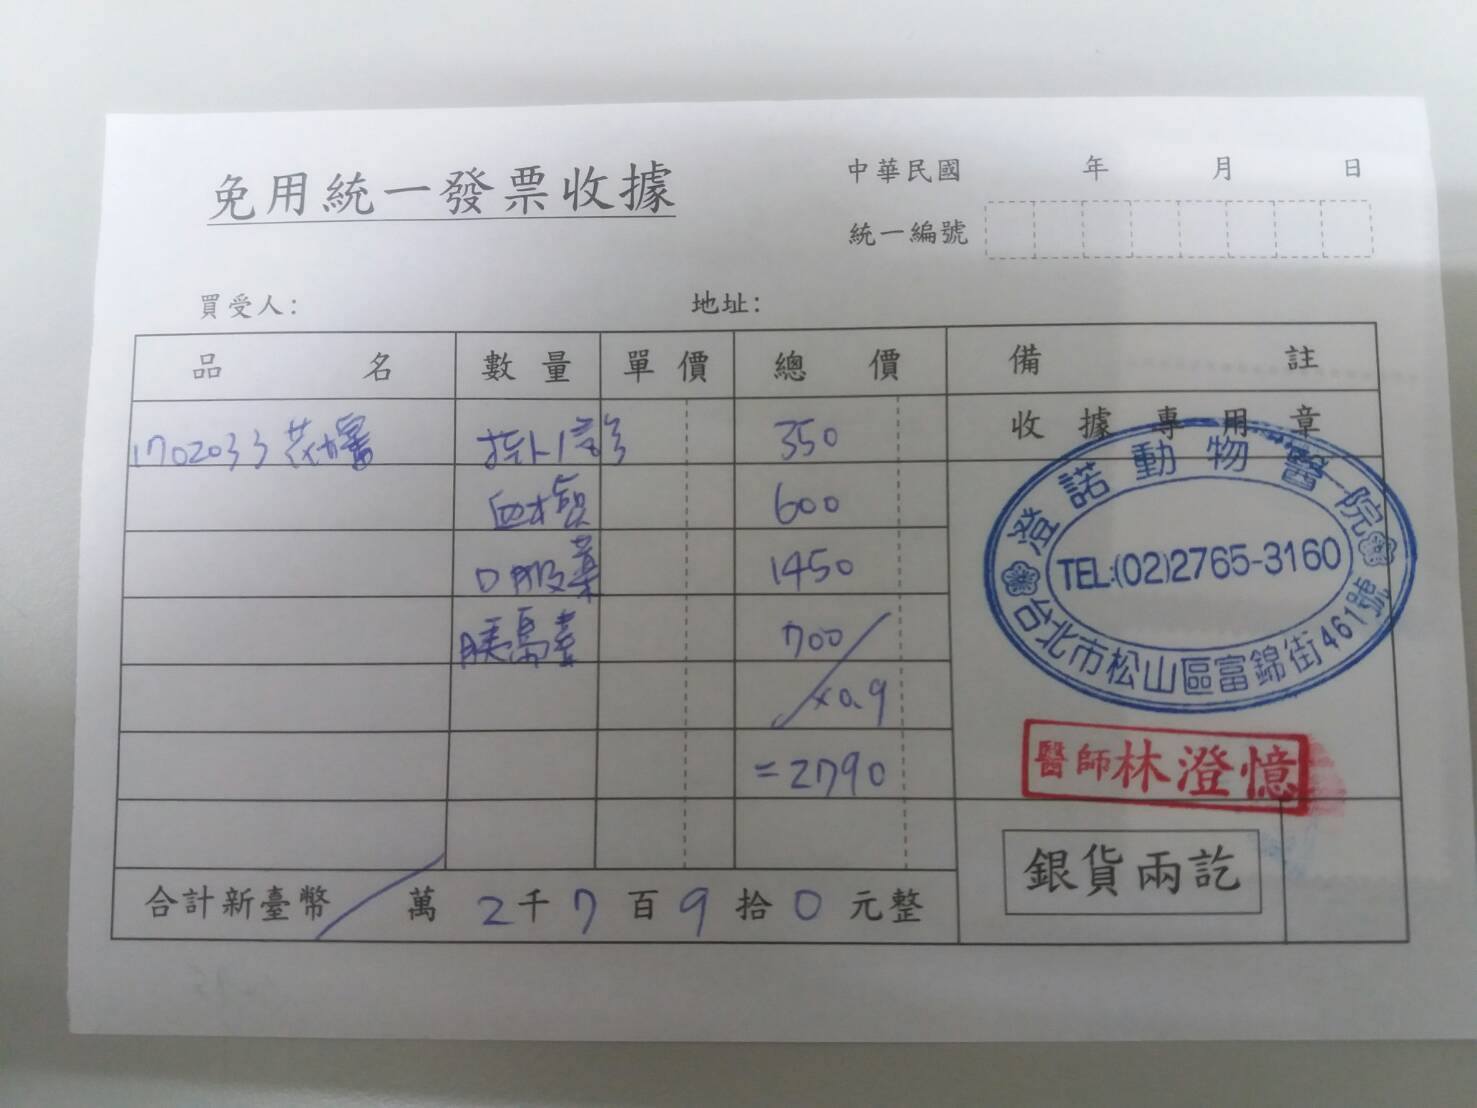 免用統一發票收據
中華民國 年 月 日
統一編號
買受人：
地址：
品名 數量 單價 總價 備註
收據專用章
1702033 花 掛 診 350
血 600
口服藥 1450
胰島素 700
×0.9
=2790
合計新臺幣 萬 2千7百9拾0元整
澄諾動物醫院
TEL:(02)2765-3160
台北市松山區富錦街461號
醫師林澄憶
銀貨兩訖